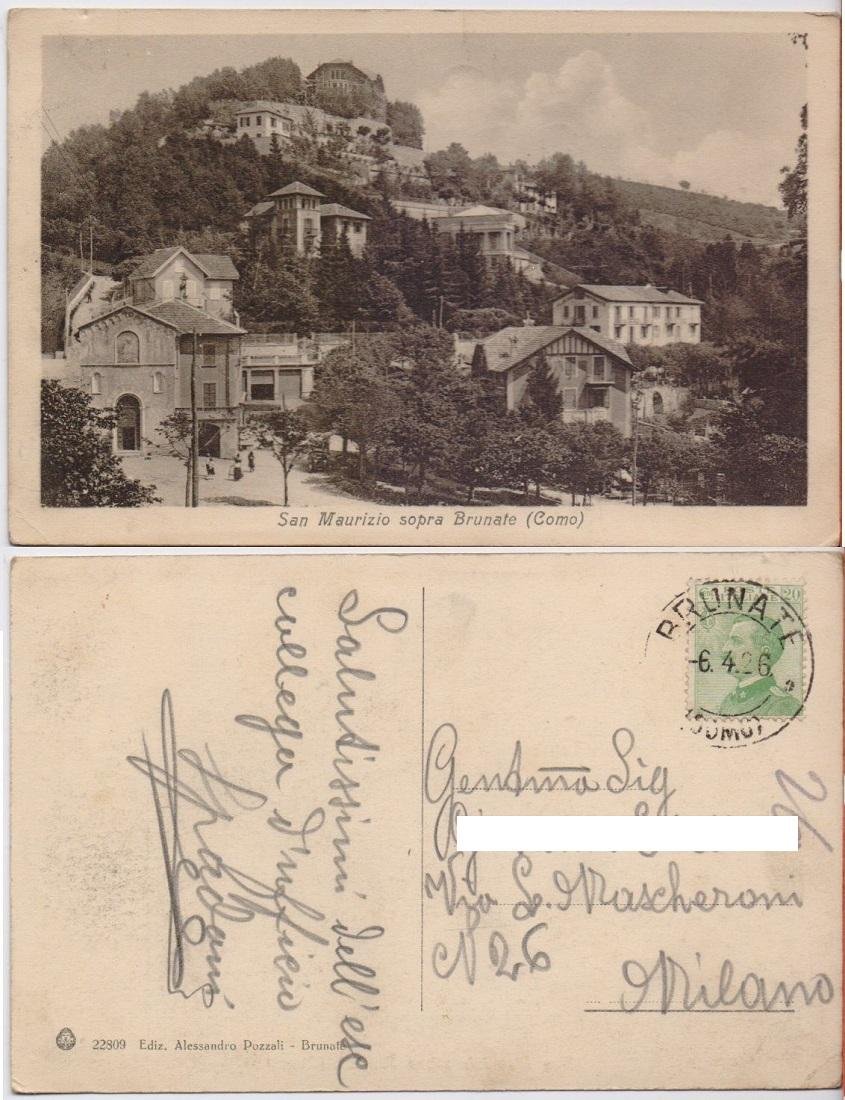 San Maurizio sopra Brunate (Como)
Salutissimi dell'ex
collega d'ufficio
Spadoni
20
BRUNATE
-6.4.26
(COMO)
Gentma Sig
Via L. Mascheroni
N 26
Milano
22809 Ediz. Alessandro Pozzali - Brunate